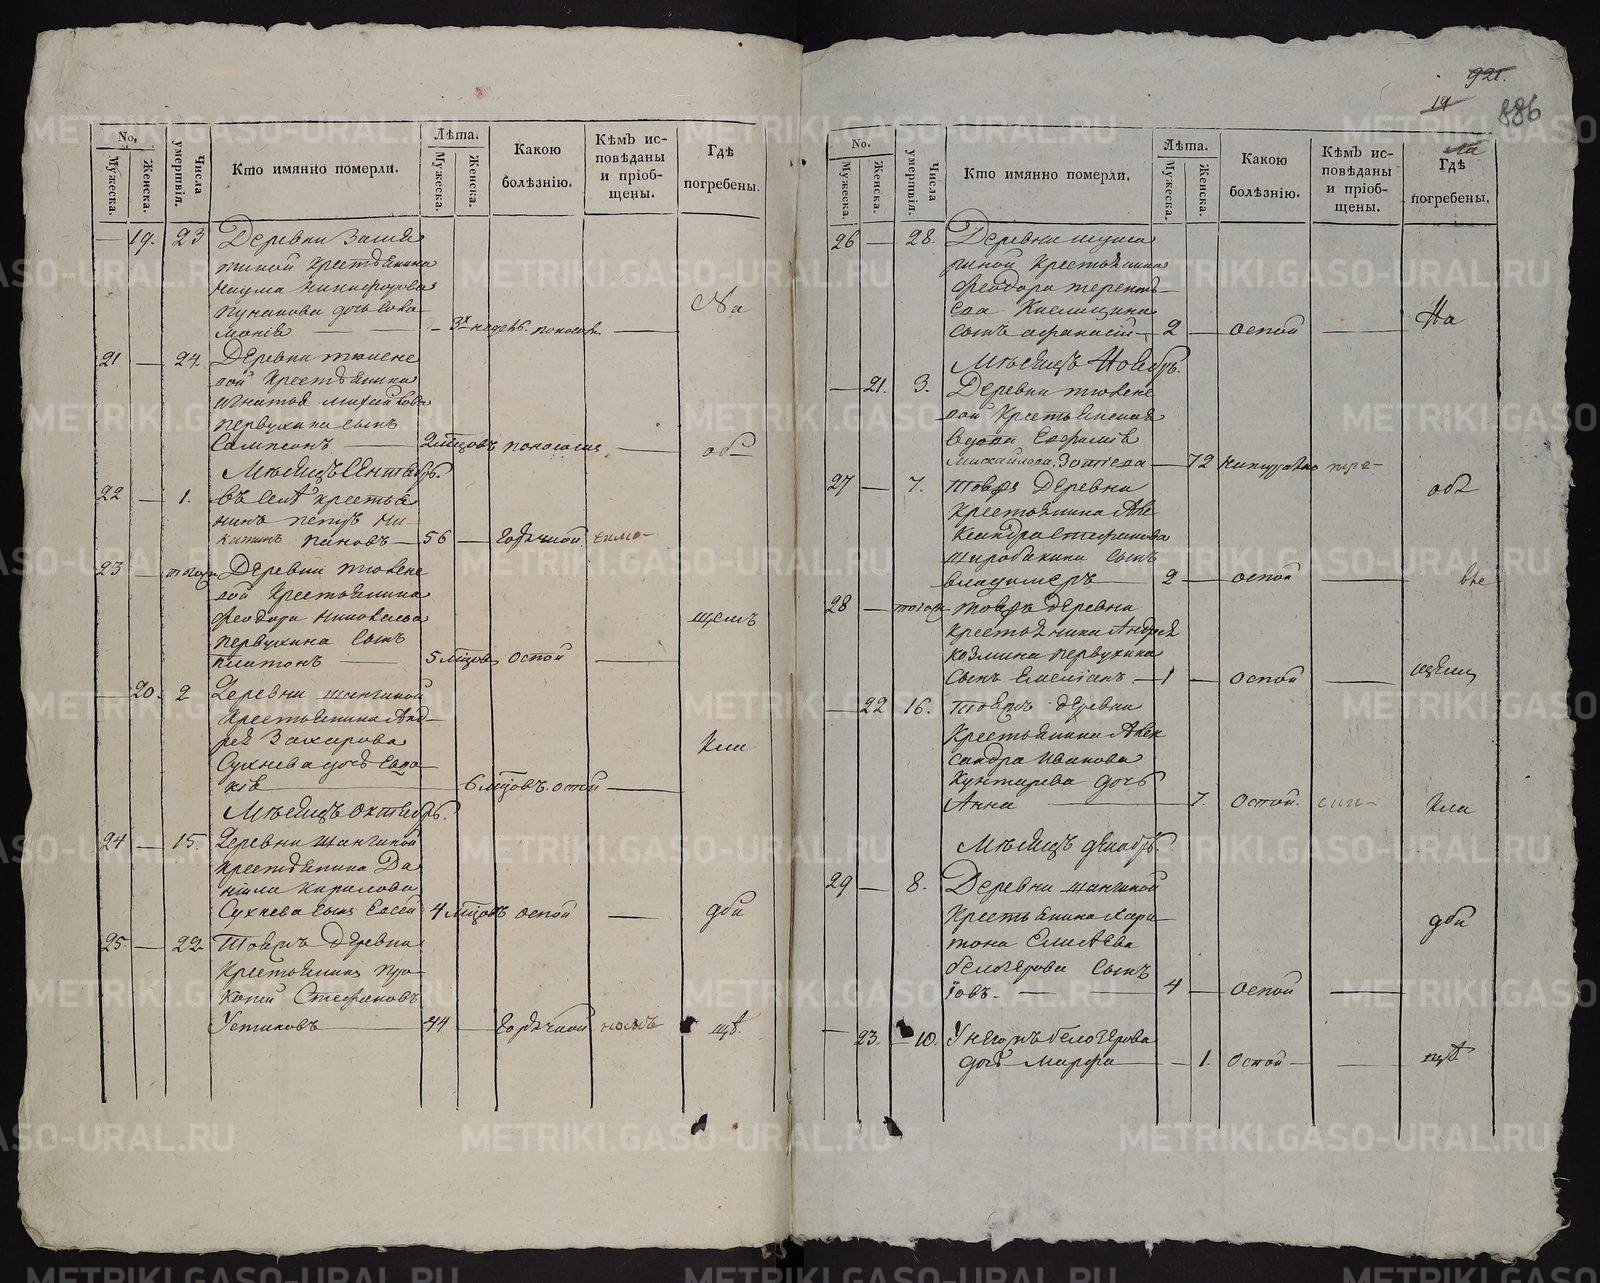 No.
Мужеска.
Женска.
Числа умертвія.
Кто имянно померли.
Лѣта.
Мужеска.
Женска.
Какою болѣзнію.
Кѣмъ исповѣданы и пріобщены.
Гдѣ погребены.
— 19. 23 Деревни
крестьянина
Наума Никифорова
дочь Соло
монія — — 3х недѣль. поносом —
На
21 — 24. Деревни тюлене
вой крестьянина
Игнатья Михайлова
первухина сынъ
Сампсонъ — 2 мцовъ поносомъ —
об
Мѣсяцъ Сентябрь.
22 — 1. въ селѣ крестья
нинъ петръ Ни
китинъ пановъ — 56 — горячкой
23 — тогож Деревни тюлене
вой Крестьянина
Феодора Николаева
первухина сынъ
платонъ — 5 мцовъ оспой —
щемъ
— 20. 2 Деревни шангиной
Крестьянина Анд
рея Захарова
Сухнева дочь Евдо
кія — 6 мцовъ. оспой —
кла
Мѣсяцъ Октябрь.
24 — 15. Деревни шангиной
крестьянина Да
ніила Кирилова
Сухнева сынъ Евсей 4 мцовъ оспой —
дби
25 — 22 Тоеяжъ деревни
Крестьянинъ про
копій Стефановъ
Устиновъ 44 — горячкой
щѣ.
921.
19
886
No.
Мужеска.
Женска.
Числа умертвія.
Кто имянно померли.
Лѣта.
Мужеска.
Женска.
Какою болѣзнію.
Кѣмъ исповѣданы и пріобщены.
На
Гдѣ погребены.
26 — 28. Деревни
Крестьянина
Феодора терентье
ва Кислицина
сынъ афанасій — 2 — оспой —
На
Мѣсяцъ Ноябрь.
— 21. 3. Деревни тюлене
вой Крестьянская
вдова Евфимія
Михайлова Зотеева — 72
27 — 7. Тояжъ Деревни
Крестьянина Але
ксандра Стефанова
Широбокина сынъ
владимеръ 2 — оспой —
об
28 — тогож тояжъ деревни
Крестьянина Андрея
козмина первухина
Сынъ Емеліанъ — 1 — оспой —
щемъ
— 22 16. Тояжъ деревни
Крестьянина Алек
сандра Иванова
дочь
Анна — 7. оспой.
кла
Мѣсяцъ декабрь.
29 — 8. Деревни шангиной
Крестьянина Хари
тона Елисѣева
белозерова сынъ
Іовъ. — 4 — оспой —
дби
— 23. — 10. У негожъ белозерова
дочь Марфа — 1. оспой —
щѣ
METRIKI.GASO-URAL.RU